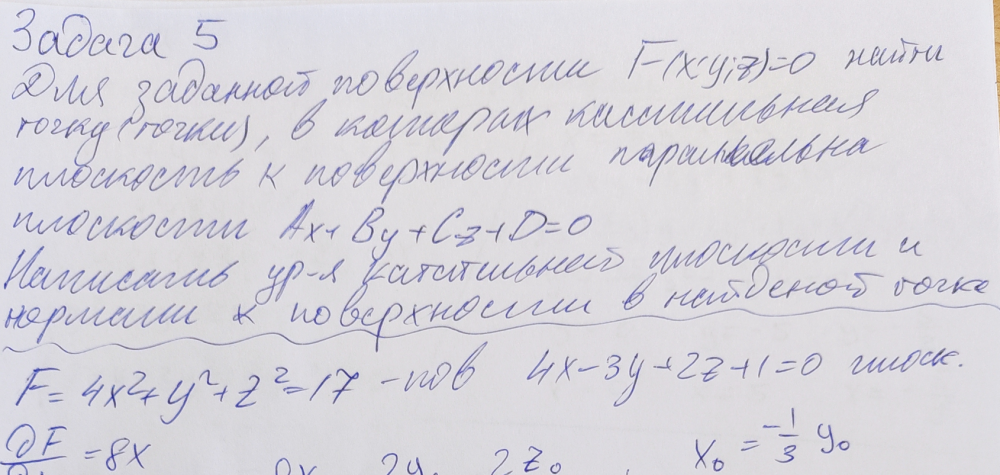 Задача 5
Для заданной поверхности F(x;y;z)=0 найти
точку (точки), в которых касательная
плоскость к поверхности параллельна
плоскости Ax+By+Cz+D=0
Написать ур-я касательной плоскости и
нормали к поверхности в найденой точке
F=4x²+y²+z²=17 -пов 4x-3y+2z+1=0 плоск.
∂F = 8x 2y₀ 2z₀ x₀ = -1/3 y₀